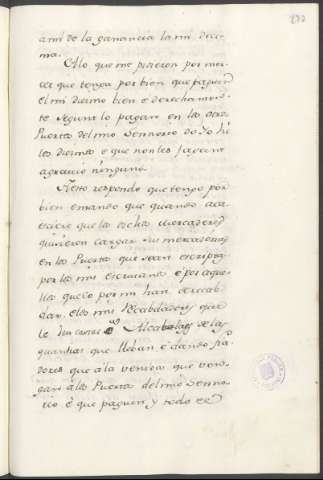 a mi de la ganancia la mi decima.
Et lo que me pidieron por merced que tenga por bien que paguen
el mi diezmo bien e derechamente
segunt lo pagan en los otros
Puertos del mio Sennorio do Yo he
los diezmos e que non les fagan
agravio ninguno.
A esto respondo que tengo por
bien e mando que quando acaesciere que los dichos mercaderes
quisieren cargar sus mercadurias
en los Puertos que sean escriptas
por los mis Escrivanos é por aquellos que lo por mi han de recabdar, e los mis Recabdadores que
le den cartas Alvalaes de las
quantias que lleban é dando fiadores que a la venida que vengan a los Puertos del mio Sennorio é que paguen y todo el